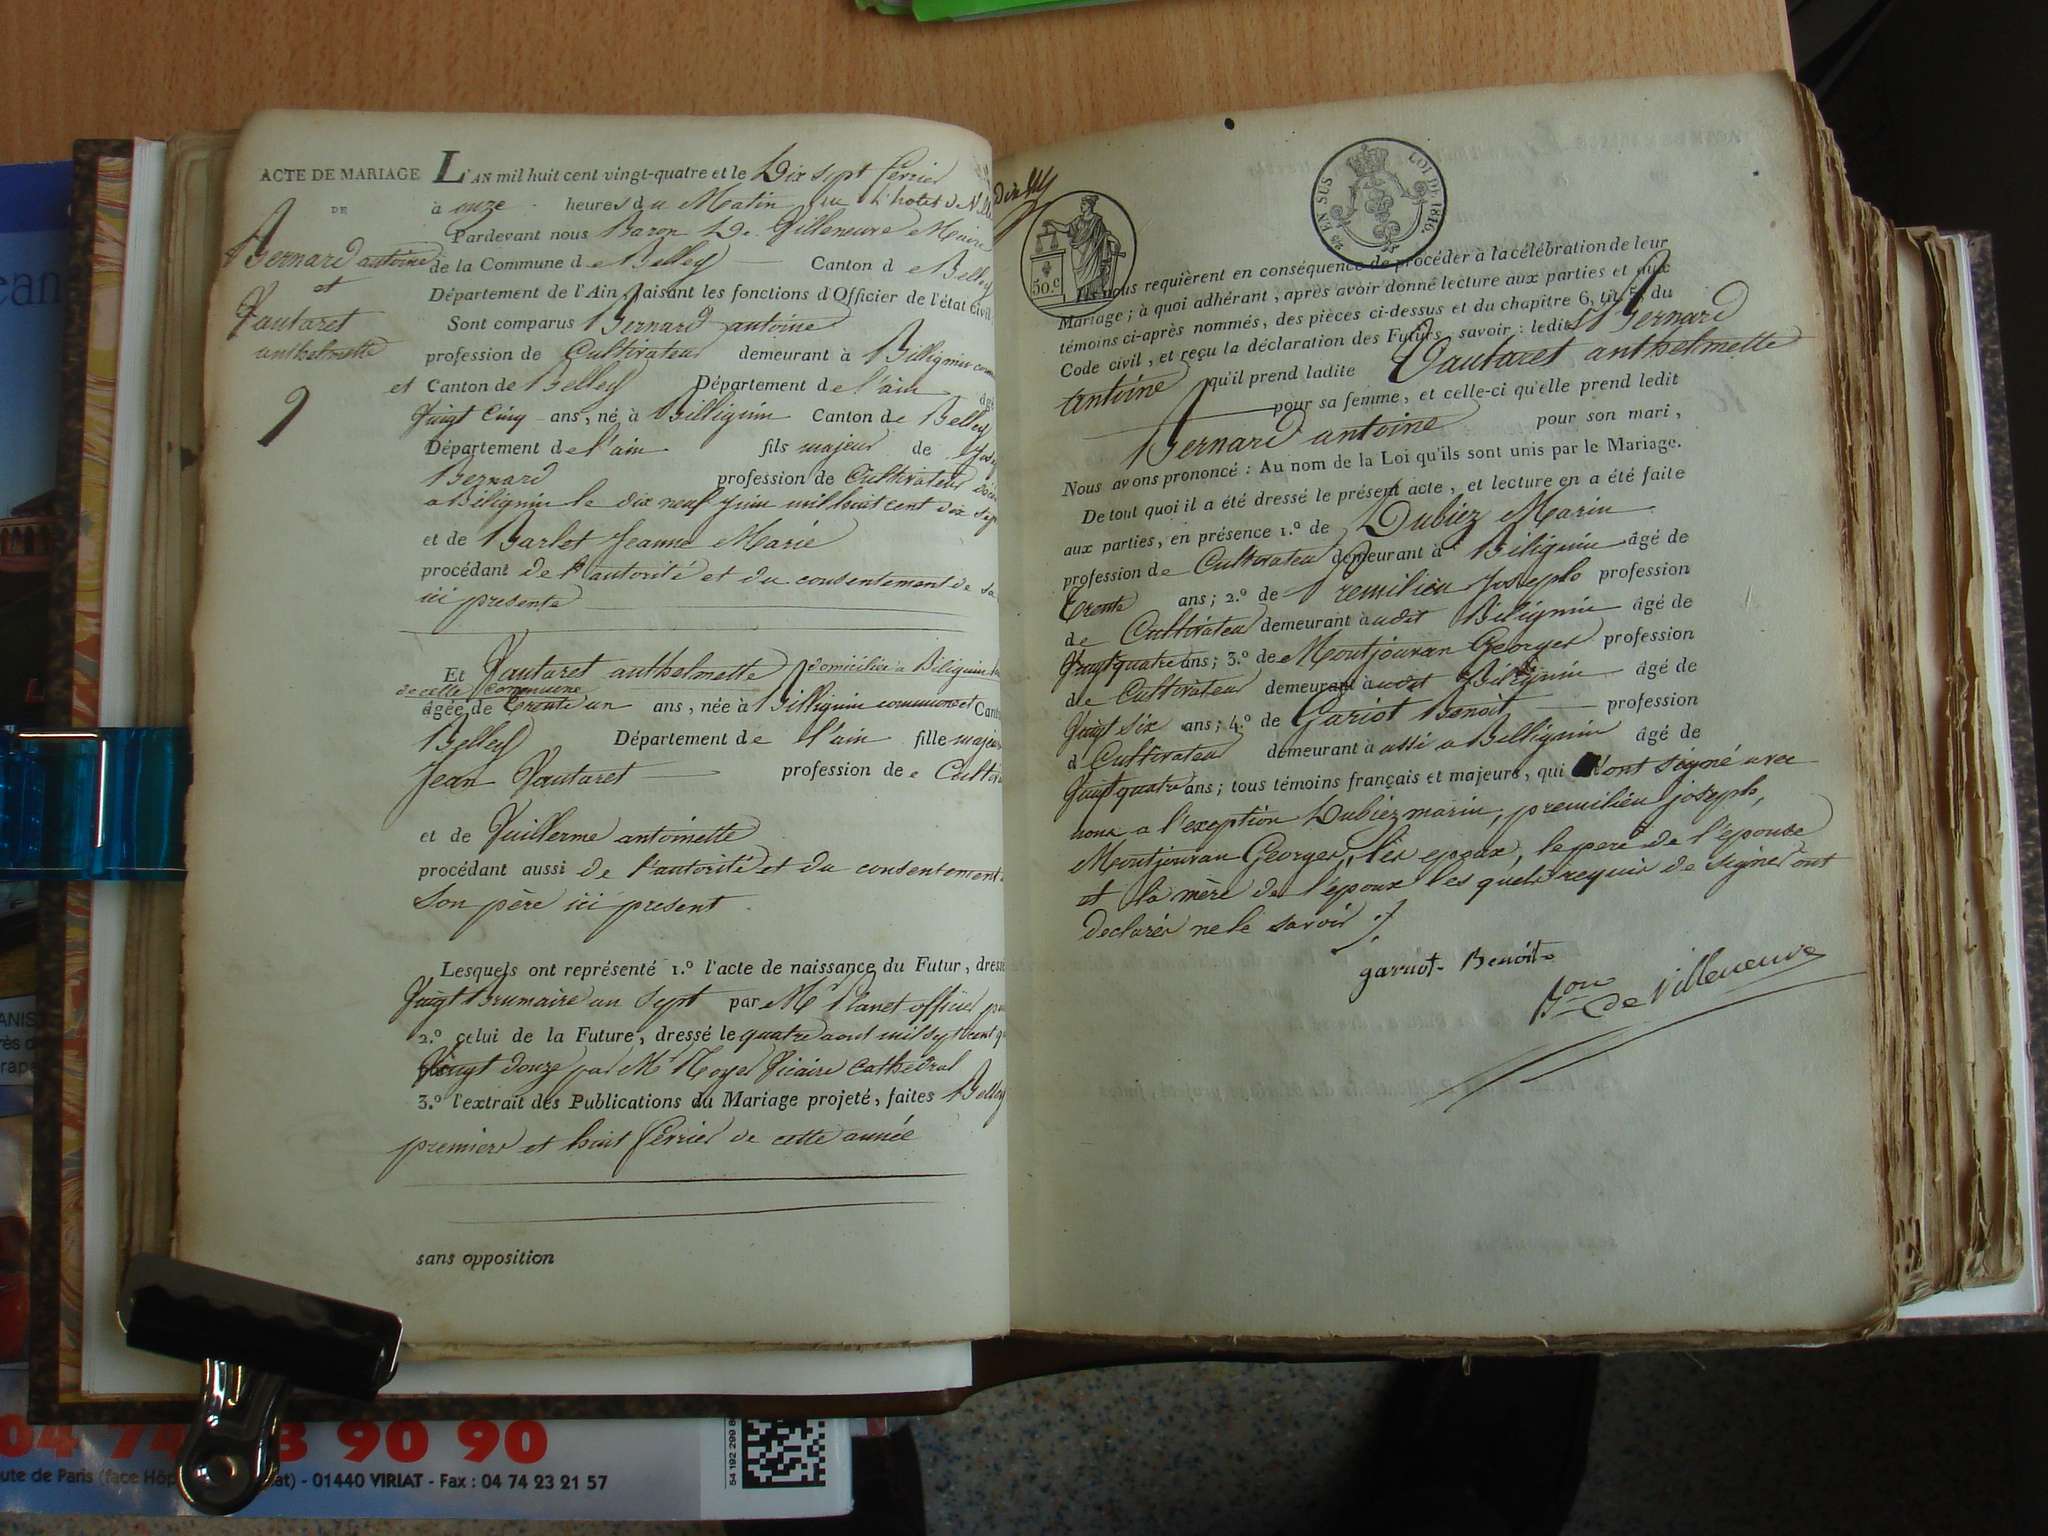 ACTE DE MARIAGE
DE
Bernard antoine
et
Vautaret
anthelmette
9
L'AN mil huit cent vingt-quatre et le Dix sept fevrier
à onze heures du Matin en l'hotel de
Pardevant nous Baron De Villeneuve Maire
de la Commune de Belley Canton de Belley
Département de l'Ain faisant les fonctions d'Officier de l'état civil
Sont comparus Bernard antoine
profession de Cultivateur demeurant à Billignin
et Canton de Belley Département de l'ain âgé
Vingt Cinq ans, né à Billignin Canton de Belley
Département de l'ain fils majeur de
Bernard profession de Cultivateur
a Bilignin le dix neuf juin mil huit cent dix sept
et de Barlet Jeanne Marie
procédant de l'autorité et du consentement de sa
ici presente
Et Vautaret anthelmette domiciliée a Bilignin
de cette commune
âgée de trente un ans, née à Billignin commune et Canton
Belley Département de l'ain fille majeure
Jean Vautaret profession de Cultiva
et de Vuillerme antoinette
procédant aussi de l'autorité et du consentement
Son père ici present
Lesquels ont représenté 1.º l'acte de naissance du Futur, dressé
Vingt Brumaire an Sept par Mr Planet officier
2.º celui de la Future, dressé le quatre aout mil sept cent
Vingt douze par Mr Vicaire Cathedral
3.º l'extrait des Publications du Mariage projeté, faites Belley
premier et huit fevrier de cette année
sans opposition
30.c
EN SUS
LOI DE 1816.
Ils nous requièrent en conséquence de procéder à la célébration de leur
Mariage; à quoi adhérant, après avoir donné lecture aux parties et aux
témoins ci-après nommés, des pièces ci-dessus et du chapitre 6, tit. 5, du
Code civil, et reçu la déclaration des Futurs, savoir: ledit Bernard
antoine qu'il prend ladite Vautaret anthelmette
pour sa femme, et celle-ci qu'elle prend ledit
Bernard antoine pour son mari,
Nous avons prononcé: Au nom de la Loi qu'ils sont unis par le Mariage.
De tout quoi il a été dressé le présent acte, et lecture en a été faite
aux parties, en présence 1.º de Dubiez Marin
profession de Cultivateur demeurant à Bilignin âgé de
trente ans; 2.º de Premilieu Joseph profession
de Cultivateur demeurant audit Bilignin âgé de
Vingt quatre ans; 3.º de Montjouvan Georges profession
de Cultivateur demeurant audit Bilignin âgé de
Vingt six ans; 4.º de Gariot Benoit profession
d Cultivateur demeurant à aussi a Bellignin âgé de
Vingt quatre ans; tous témoins français et majeurs, qui ont signé avec
nous a l'exeption Dubiez marin, premilieu joseph,
Montjouvan Georges, les epoux, le pere de l'epouse
et la mère de l'époux les quels requis de signer ont
declarés ne le savoir
garriot Benoit
Bon de Villeneuve
04 74 3 90 90
ute de Paris (face Hôp at) - 01440 VIRIAT - Fax : 04 74 23 21 57